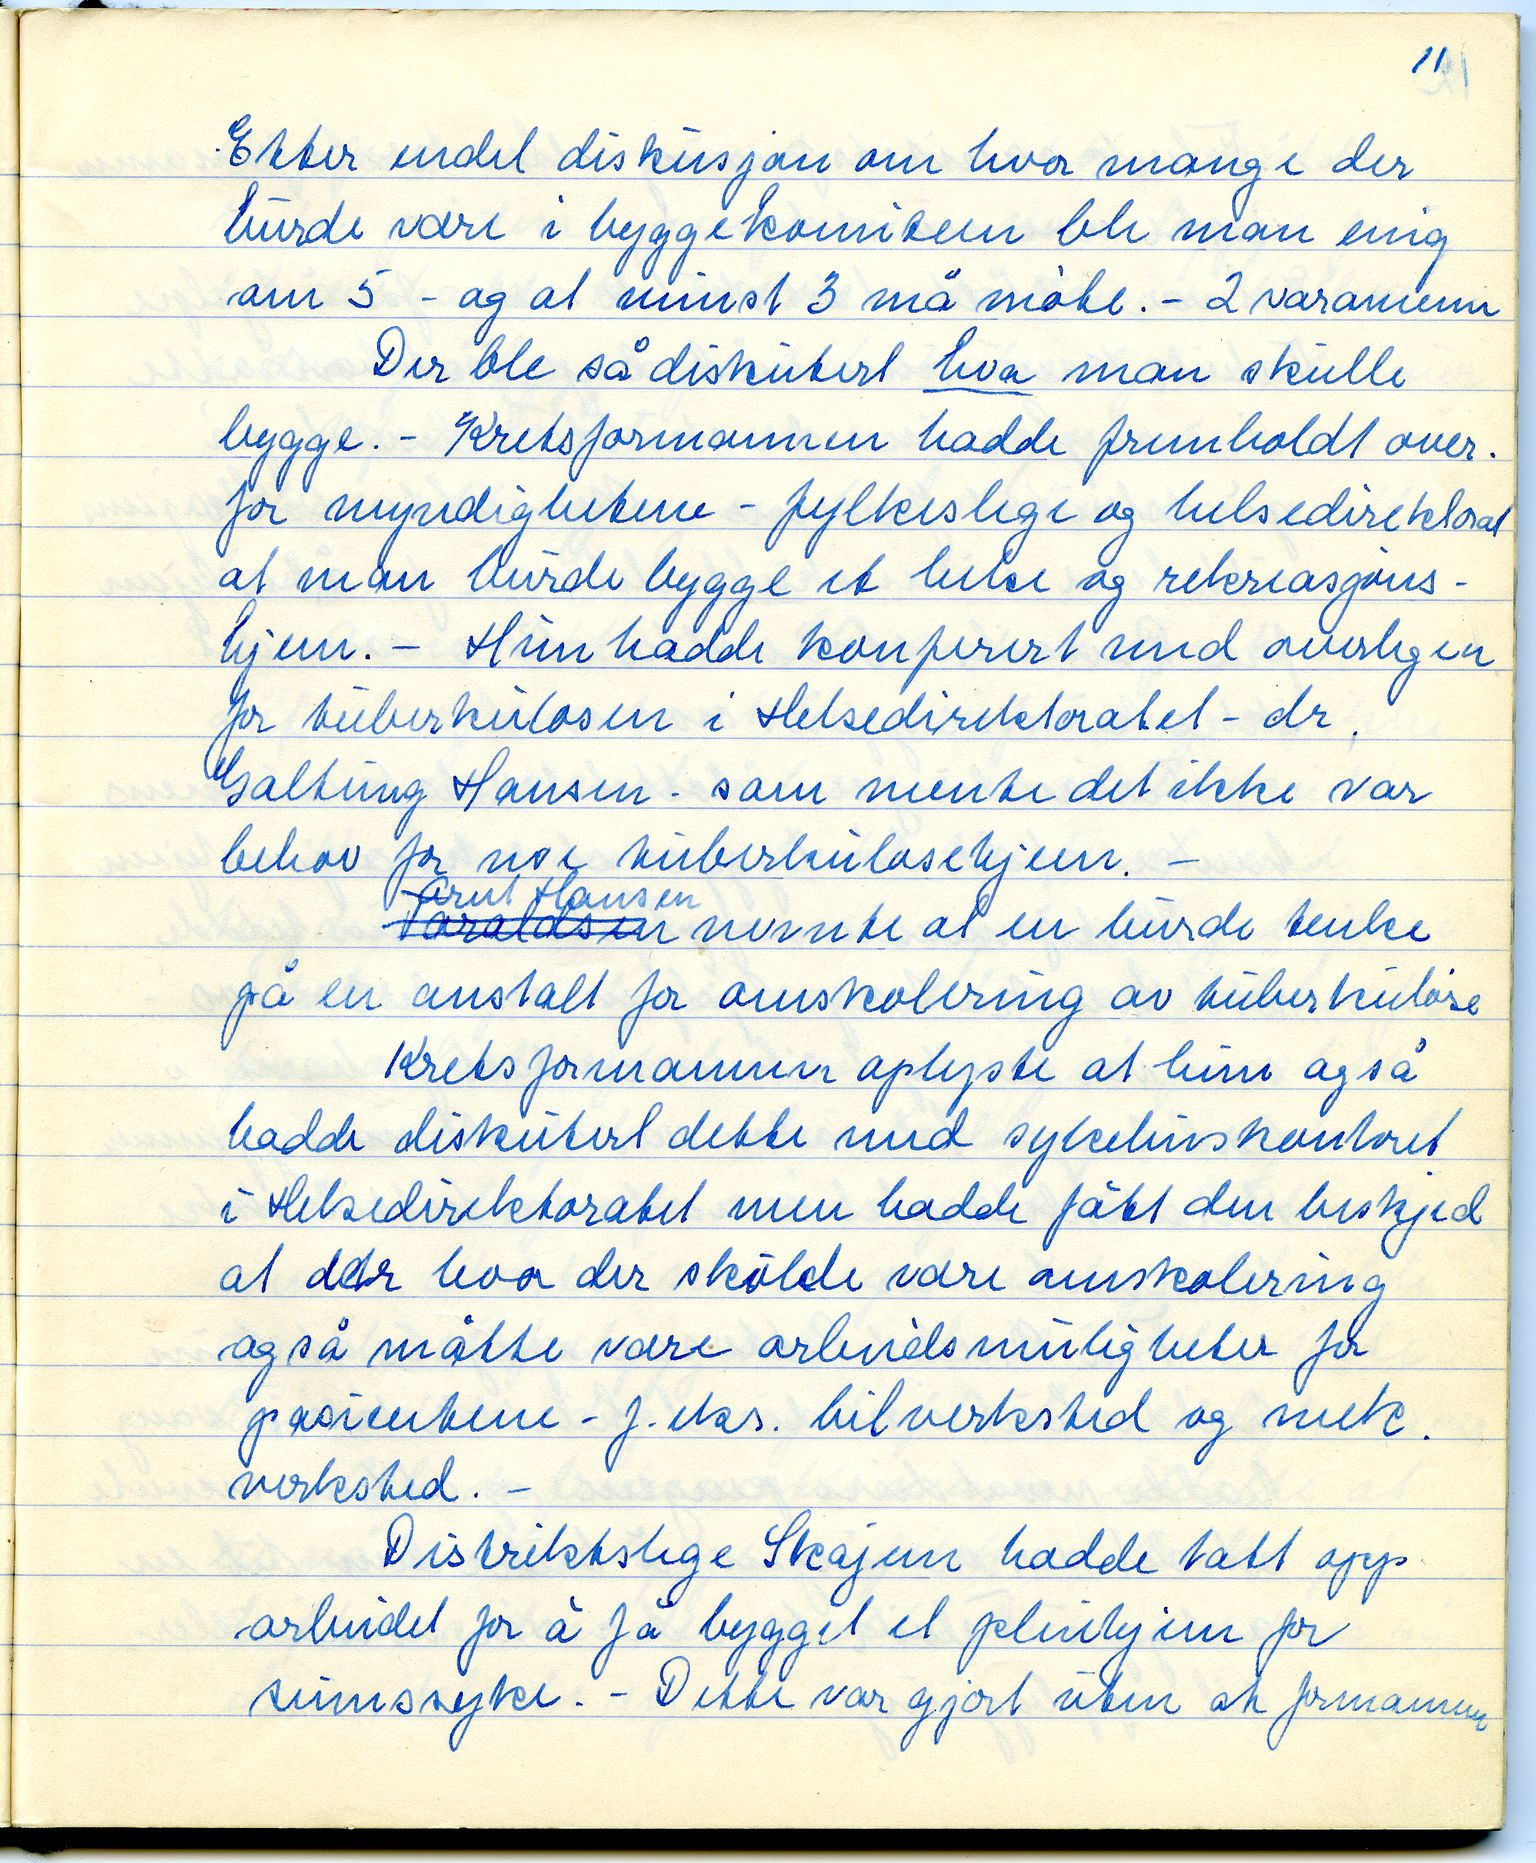 11
Etter endel diskusjon om hvor mange der
burde være i byggekomiteen ble man enig
om 5 - og at minst 3 må møte. - 2 varamenn
Der ble så diskutert hva man skulle
bygge. - Kretsformannen hadde fremholdt over-
for myndighetene - fylkeslege og helsedirektorat
at man burde bygge et hvile og rekreasjons-
hjem. - Hun hadde konferert med overlegen
for tuberkulosen i Helsedirektoratet - dr.
Galtung Hansen - som mente det ikke var
behov for noe tuberkulosehjem. -
Arnt Hansen
Taraldsen nevnte at en burde tenke
på en anstalt for omskolering av tuberkuløse
Kretsformannen oplyste at hun også
hadde diskutert dette med sykehuskontoret
i Helsedirektoratet men hadde fått den beskjed
at der hvor der skulde være omskolering
også måtte være arbeidsmuligheter for
pasientene - f. eks. bilverksted og mek.
verksted. -
Distriktslege Skajem hadde tatt opp
arbeidet for å få bygget et pleiehjem for
sinnssyke. - Dette var gjort uten at formannen